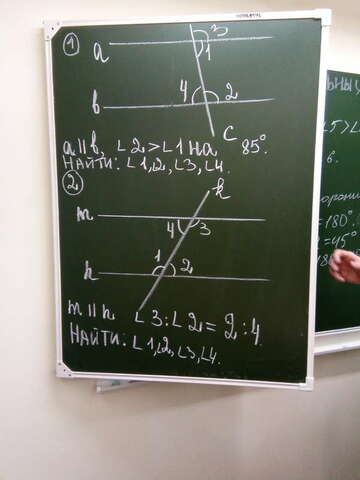 1
a
3
1
b
4 2
c
a ∥ b, ∠2 > ∠1 на 85°.
Найти: ∠1, 2, ∠3, ∠4.
2
k
m
4 3
1 2
n
m ∥ n ∠3 : ∠2 = 2 : 4.
Найти: ∠1, ∠2, ∠3, ∠4.
5 > ∠
в.
=180°.
=45°